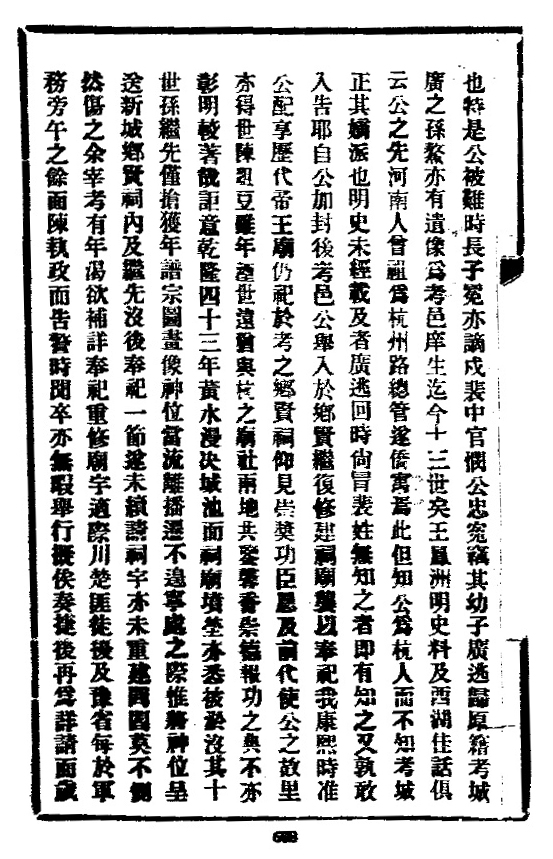 也特是公被難時長子冕亦謫戍裴中官憫公忠寃竊其幼子廣逃歸原籍考城
廣之孫鰲亦有遺像爲考邑庠生迄今十三世矣王鳳洲明史料及西湖佳話俱
云公之先河南人曾祖爲杭州路總管遂僑寓焉此但知公爲杭人而不知考城
正其嫡派也明史未經載及者廣逃回時尙冒裴姓無知之者即有知之又孰敢
入告耶自公加封後考邑公舉入於鄉賢繼復修建祠廟襲以奉祀我康熙時准
公配享歷代帝王廟仍祀於考之鄉賢祠仰見崇奬功臣恩及前代使公之故里
亦得世陳俎豆雖年湮世遠猶與杭之廟社兩地共鑒馨香崇德報功之典不亦
彰明較著哉詎意乾隆四十三年黃水漫決城池面祠廟墳塋亦悉被淤沒其十
世孫繼先僅搶獲年譜宗圖畫像神位當流離播遷不遑寧處之際惟將神位呈
送新城鄉賢祠內及繼先沒後奉祀一節遂未續請祠宇亦未重建因循莫不惻
然傷之余宰考有年湯欲補詳奉祀重修廟宇適際川楚匪徒擾及豫省每於軍
務旁午之餘面陳執政而告警時聞卒亦無暇舉行擬俟奏捷後再爲詳請面歲